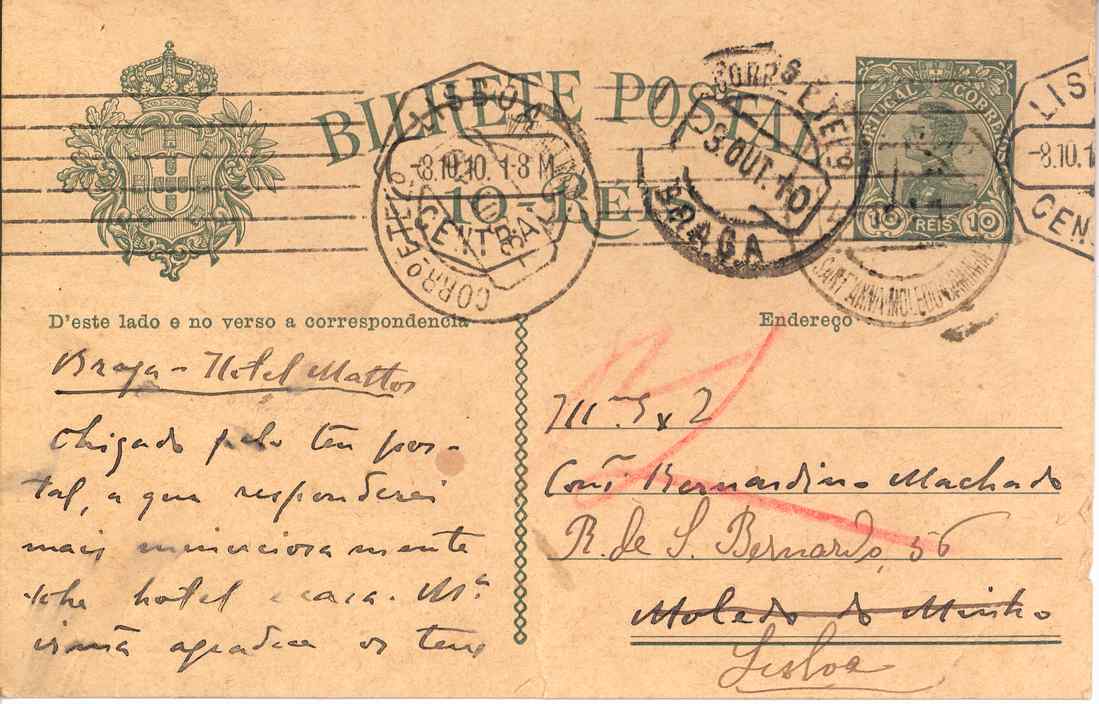 BILHETE POSTAL
10-REIS
LISBOA
-8.10.10. 1-8 M
CENTRAL
CORRo E TELEGo
CORRO E TELEG
3 OUT. 10
BRAGA
PORTUGAL CORREIO
10 REIS 10
LIS
-8.10.1
CEN
SANT'ANNA MOLEDO
D'este lado e no verso a correspondencia
Endereço
Braga - Hotel Mattos
Obrigado pelo teu pos-
tal, a que responderei
mais minuciosamente
hotel e casa. Ma
irmã agradece os teus
Bernardino Machado
R. de S. Bernardo, 56
Moledo do Minho
Lisboa